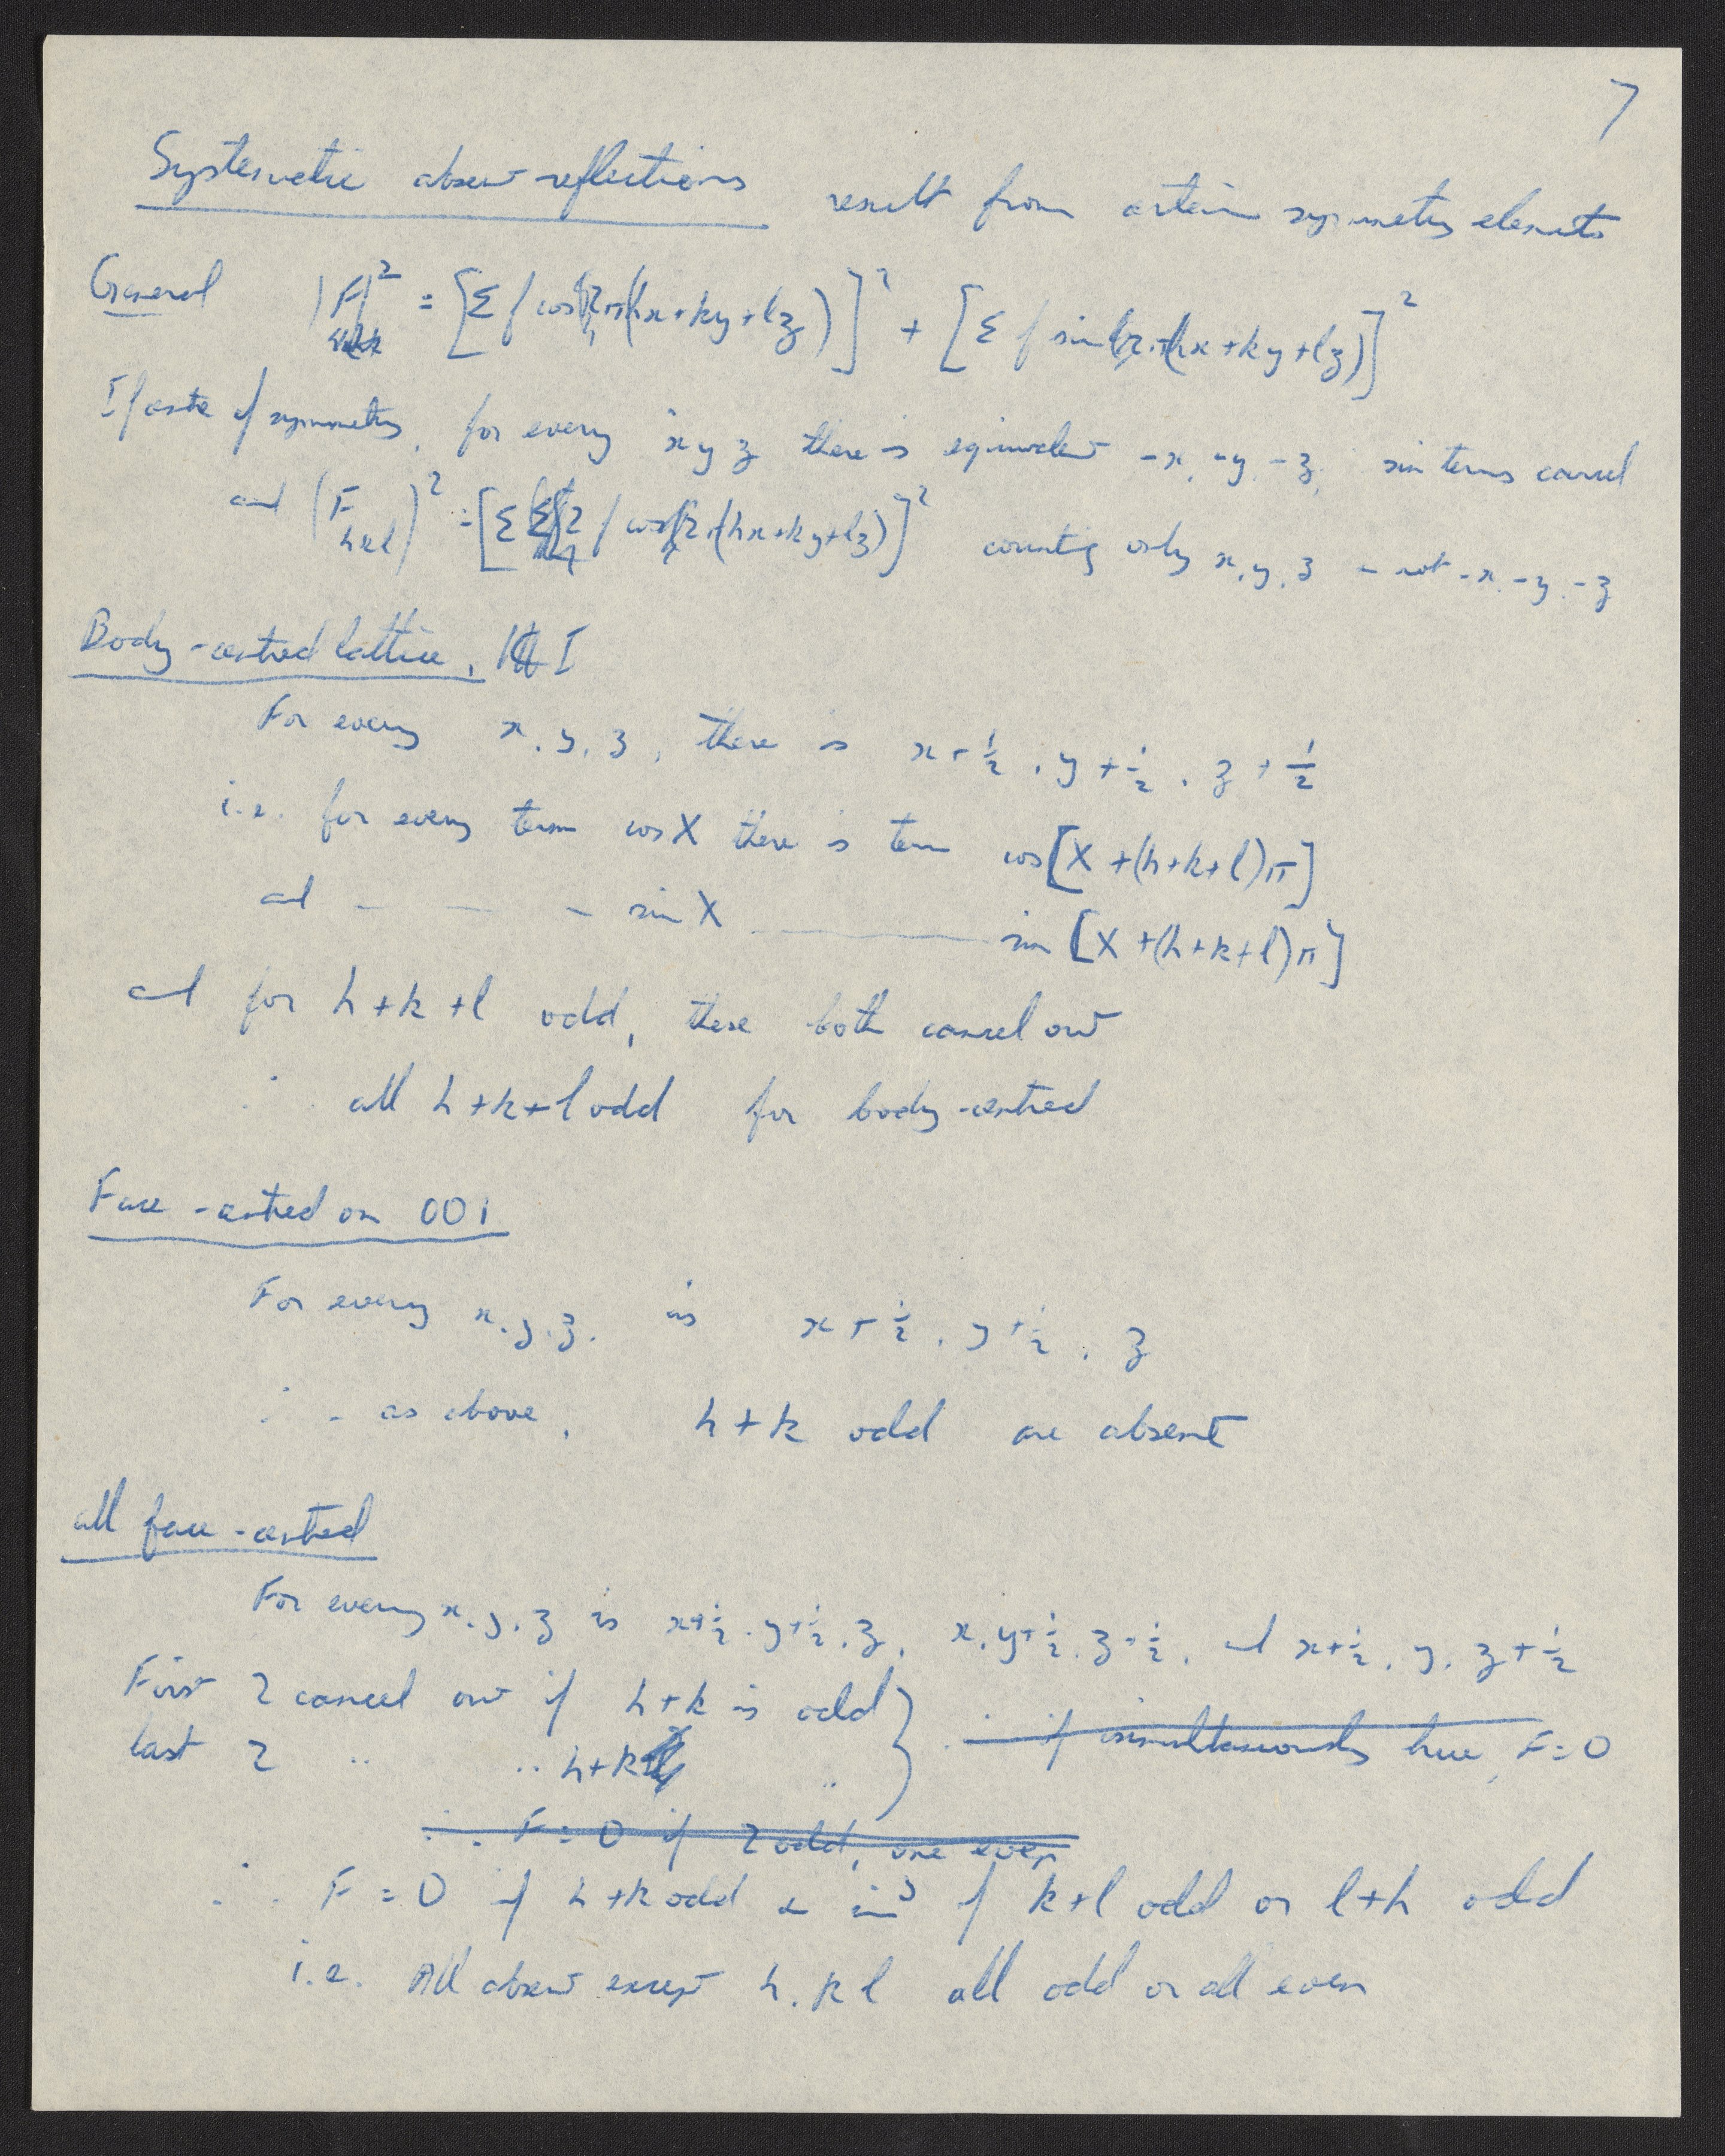 7
Systematic absent reflections result from certain symmetry elements
General |F|² = [Σ f cos 2π(hx+ky+lz)]² + [Σ f sin 2π(hx+ky+lz)]²
hkl
If centre of symmetry, for every x y z there is equivalent -x, -y, -z, sin terms cancel
and (F hkl)² = [Σ 2 f cos 2π(hx+ky+lz)]² counting only x, y, z - not -x, -y, -z
Body-centred lattice, I
For every x, y, z, there is x+½, y+½, z+½
i.e. for every term cos X there is term cos[X+(h+k+l)π]
and - - - sin X sin[X+(h+k+l)π]
and for h+k+l odd, these both cancel out
∴ all h+k+l odd for body-centred
Face-centred on 001
For every x, y, z. is x+½, y+½, z
∴ - as above, h+k odd are absent
all face-centred
For every x, y, z is x+½, y+½, z, x, y+½, z+½, and x+½, y, z+½
First 2 cancel out if h+k is odd
last 2 " " h+k "
∴ if simultaneously true, F=0
∴ F=0 if 2 odd, one even
∴ F=0 if h+k odd & if k+l odd or l+h odd
i.e. All absent except h, k l all odd or all even